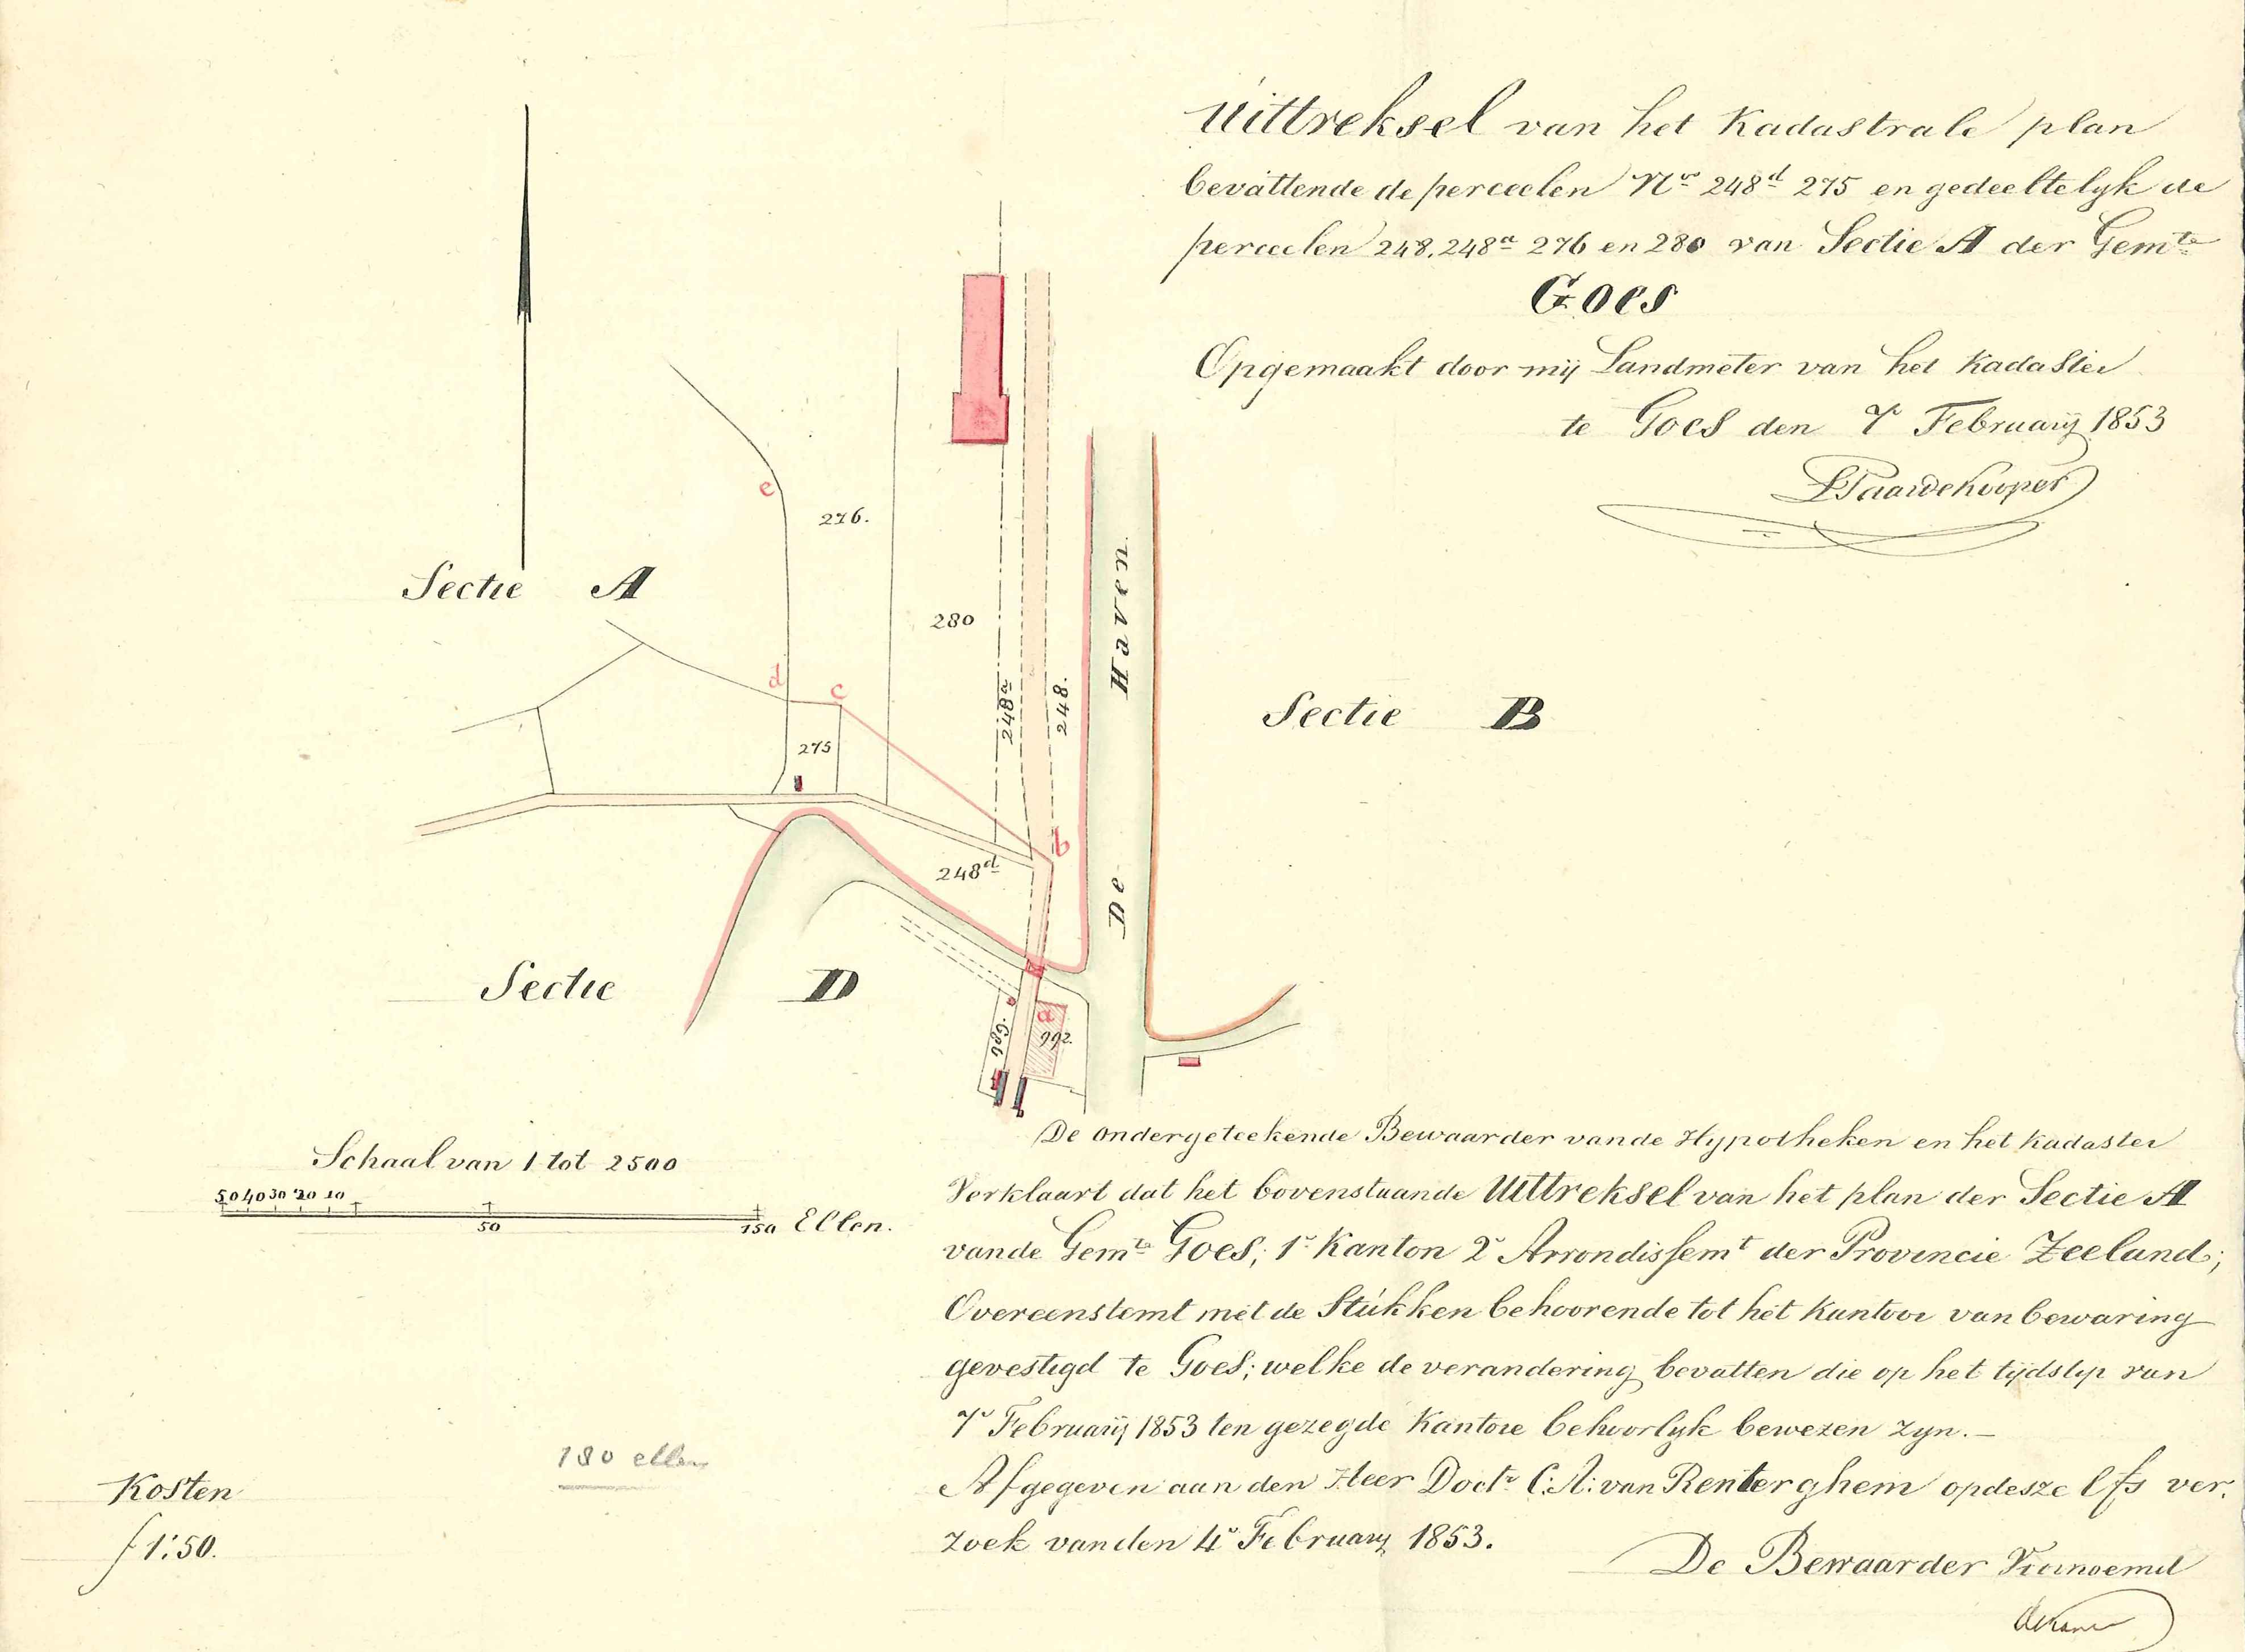 Uittreksel van het Kadastrale plan
bevattende de perceelen Nrs 248d 275 en gedeeltelyk de
perceelen 248. 248a 276 en 280 van Sectie A der Gemte
Goes
Opgemaakt door mij Landmeter van het Kadaster
te Goes den 7 Februarij 1853
Paardekooper
e
276.
Sectie A
280
De Haven
d
c
248a
248.
Sectie B
275
b
248d
Sectie D
a
992.
Schaal van 1 tot 2500
50 40 30 20 10
50
150 Ellen.
De ondergeteekende Bewaarder van de Hypotheken en het Kadaster
Verklaart dat het bovenstaande Uittreksel van het plan der Sectie A
van de Gemte Goes; 1e Kanton 2e Arrondissemt der Provincie Zeeland;
Overeenstemt met de Stukken behoorende tot het Kantoor van bewaring
gevestigd te Goes; welke de verandering bevatten die op het tijdstip van
7e Februarij 1853 ten gezegde Kantore behoorlyk bewezen zyn. —
Afgegeven aan den Heer Doctr C: A: van Renterghem op deszelfs ver:
zoek van den 4e February 1853.
De Bewaarder Voornoemd
180 ellen
Kosten
f 1:50.